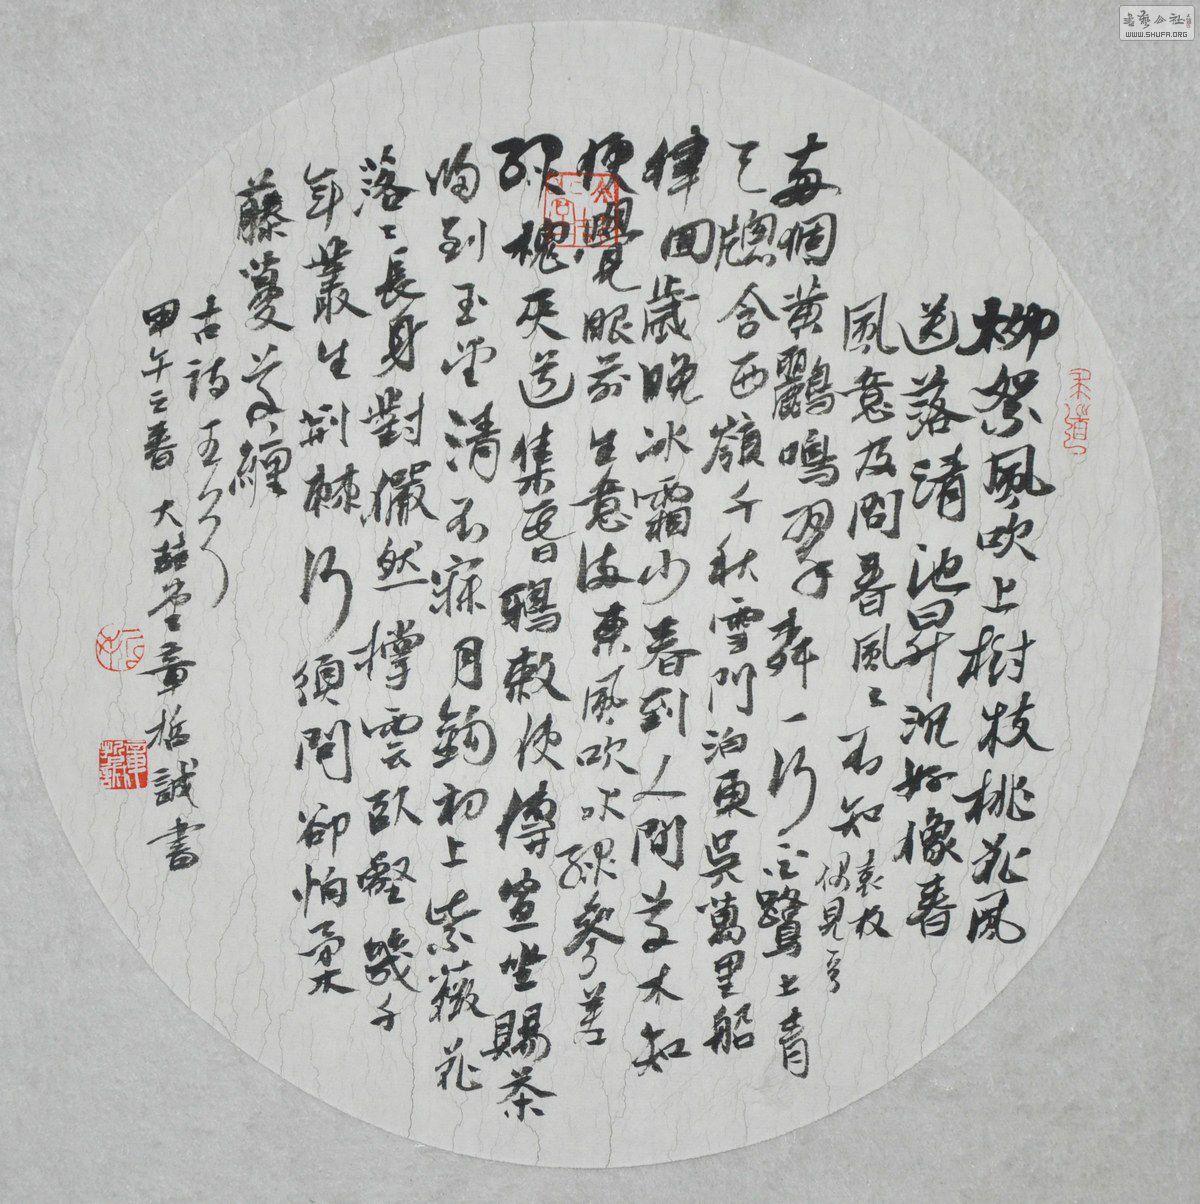 柳絮風吹上樹枝桃花風
送落清池昇沉好像春
風意及問春風〻不知袁枚
偶見
個黄鸝鳴翠一行白鷺上青
天牕含西嶺千秋雪門泊東吳萬里船
律回歲晚冰霜少春到人間草木知
便覺眼前生意滿東風吹水綠參差
綠槐夾道集昏鴉敕使傳宣坐賜茶
歸到玉堂清不寐月鉤初上紫薇花
落〻長身對儼然撐雲臥壑幾千
年叢生荊棘何須問卻怕柔
藤蔓草纏
古詩五
甲午之春大喆堂章哲誠書
書藝公社
WWW.SHUFA.ORG